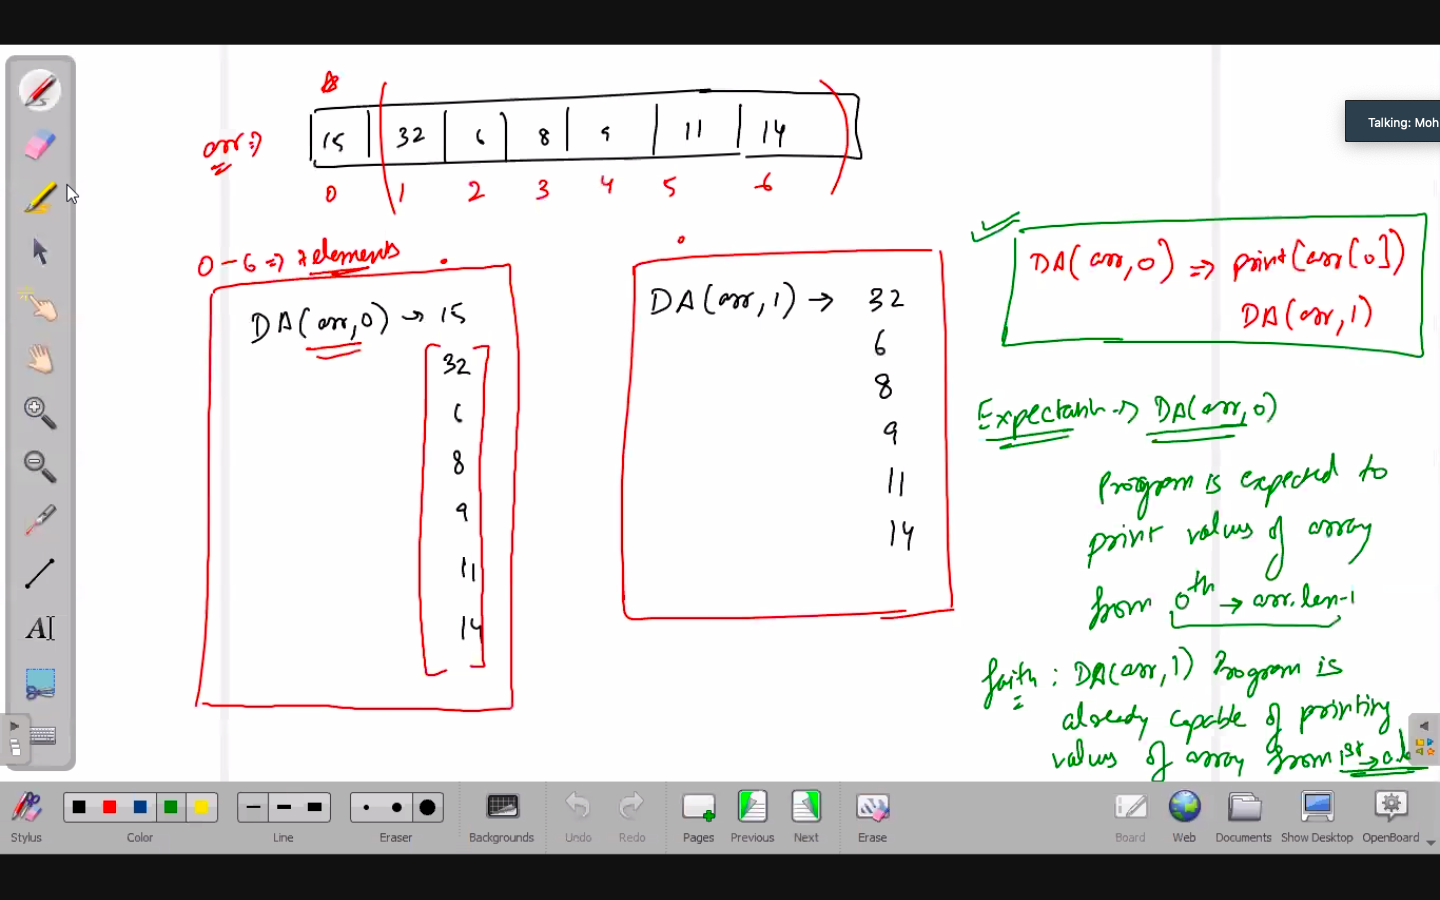 Talking: Moh
arr ⇒
15 32 6 8 9 11 14
0 1 2 3 4 5 6
0 – 6 ⇒ 7 elements
DA(arr,0) → 15
32
6
8
9
11
14
DA(arr,1) → 32
6
8
9
11
14
DA(arr,0) ⇒ print(arr[0])
DA(arr,1)
Expectation → DA(arr,0)
Program is expected to
print values of array
from 0th → arr.len-1
faith : DA(arr,1) Program is
already capable of printing
values of array from 1st →
AI
Stylus Color Line Eraser Backgrounds Undo Redo Pages Previous Next Erase Board Web Documents Show Desktop OpenBoard